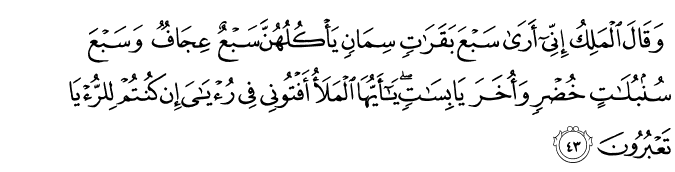 وَقَالَ ٱلْمَلِكُ إِنِّىٓ أَرَىٰ سَبْعَ بَقَرَٰتٍۢ سِمَانٍۢ يَأْكُلُهُنَّ سَبْعٌ عِجَافٌۭ وَسَبْعَ
سُنۢبُلَٰتٍ خُضْرٍۢ وَأُخَرَ يَابِسَٰتٍۢ ۖ يَٰٓأَيُّهَا ٱلْمَلَأُ أَفْتُونِى فِى رُءْيَٰىَ إِن كُنتُمْ لِلرُّءْيَا
تَعْبُرُونَ ﴿٤٣﴾